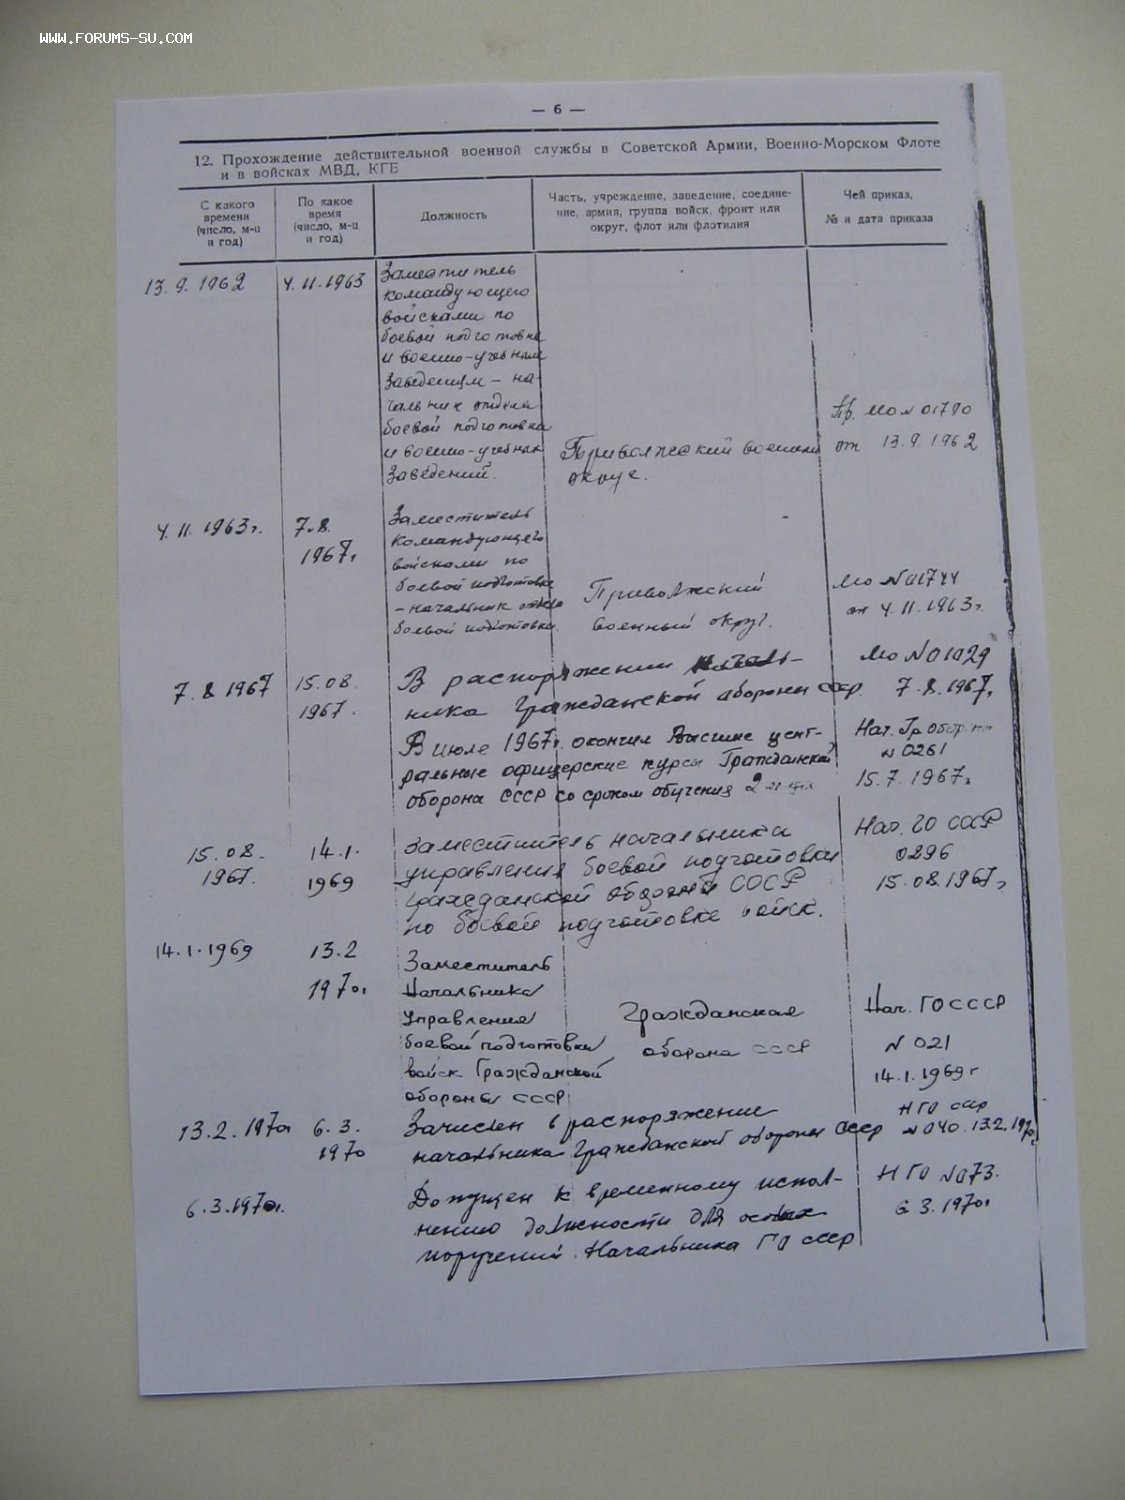 WWW.FORUMS-SU.COM
— 6 —
12. Прохождение действительной военной службы в Советской Армии, Военно-Морском Флоте
и в войсках МВД, КГБ
С какого
времени
(число, м-ц
и год)
По какое
время
(число, м-ц
и год)
Должность
Часть, учреждение, заведение, соедине-
ние, армия, группа войск, фронт или
округ, флот или флотилия
Чей приказ,
№ и дата приказа
13.9.1962
4.11.1963
Заместитель
командующего
войсками по
боевой подготовке
и военно-учебным
заведениям – на-
чальник отдела
боевой подготовки
и военно-учебных
заведений.
Приволжский военный
округ.
Пр. МО № 01790
от 13.9.1962
4.11.1963г.
7.8.
1967г
Заместитель
командующего
войсками по
боевой подготовке
– начальник отдела
боевой подготовки.
Приволжский
военный округ.
МО № 01744
от 4.11.1963г.
7.8.1967
15.08.
1967.
В распоряжении началь-
ника Гражданской обороны СССР.
МО № 01029
7.8.1967г
В июле 1967г. окончил Высшие цент-
ральные офицерские курсы Гражданской
оборона СССР со сроком обучения 2
Нач. Гр. обор.
№ 0261
15.7.1967г.
15.08.
1967.
14.1.
1969
Заместитель начальника
управления боевой подготовки
гражданской обороны СССР
по боевой подготовке войск.
Нач. ГО СССР
0296
15.08.1967г
14.1.1969
13.2
1970г
Заместитель
Начальника
Управления
боевой подготовки
войск Гражданской
обороны СССР
Гражданская
оборона СССР
Нач. ГО СССР
№ 021
14.1.1969г
13.2.1970г
6.3.
1970
Зачислен в распоряжение
начальника Гражданской обороны СССР
НГО СССР
№ 040. 13.2.1970г
6.3.1970г.
Допущен к временному испол-
нению должности для особых
поручений Начальника ГО СССР
НГО № 073.
6.3.1970г